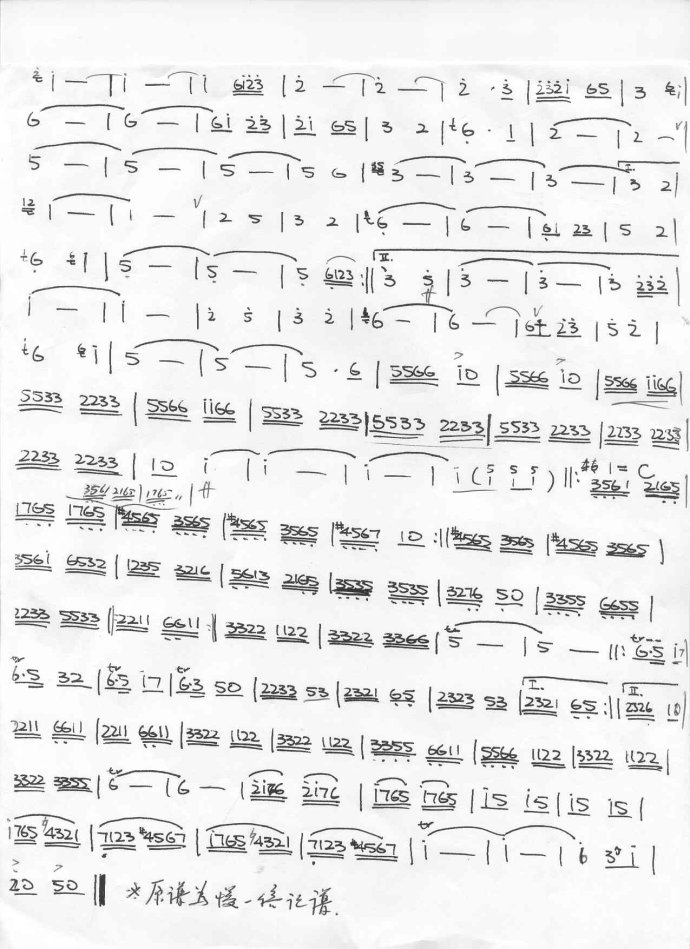 i — | i — | i 6i23 | 2 — | 2 — | 2 · 3 | 232i 65 | 3 i |
6 — | 6 — | 6i 23 | 2i 65 | 3 2 | t6 · 1 | 2 — | 2 — |
5 — | 5 — | 5 — | 5 6 | 3 — | 3 — | 3 — | I. 3 2 |
12 i — | i — | 2 5 | 3 2 | 6 — | 6 — | 6i 23 | 5 2 |
t6 1 | 5 — | 5 — | 5 6123 :|| II. 3 5 | 3 — | 3 — | 3 232 |
i — | i — | 2 5 | 3 2 | 6 — | 6 — | 23 | 5 2 |
t6 i | 5 — | 5 — | 5 · 6 | 5566 i0 | 5566 i0 | 5566 ii66 |
5533 2233 | 5566 ii66 | 5533 2233 | 5533 2233 | 5533 2233 | 2233 2233 |
2233 2233 | 10 i | i — | i — | i ( 5 5 5 i i ) ||: 转 1=C 3561 2165 |
3561 2165 | 1765 〃 | #
1765 1765 | #4565 3565 | #4565 3565 | #4567 10 :|| #4565 3565 | #4565 3565 |
3561 6532 | 1235 3216 | 5613 2165 | 3535 3535 | 3276 50 | 3355 6655 |
2233 5533 || 2211 6611 :|| 3322 1122 | 3322 3366 | tr 5 — | 5 — ||: tr 6·5 i7 |
tr 6·5 32 | tr 6·5 i7 | tr 6·3 50 | 2233 53 | 2321 65 | 2323 53 | I. 2321 65 :|| II. 2326 10 |
2211 6611 | 2211 6611 | 3322 1122 | 3322 1122 | 3355 6611 | 5566 1122 | 3322 1122 |
3322 3355 | tr 6 — | 6 — | 2i76 2i76 | i765 i765 | i5 i5 | i5 i5 |
i765 #4321 | 7123 #4567 | i765 #4321 | 7123 #4567 | tr i — | i — | 6 3 i |
20 50 || ※原谱为慢一倍记谱.